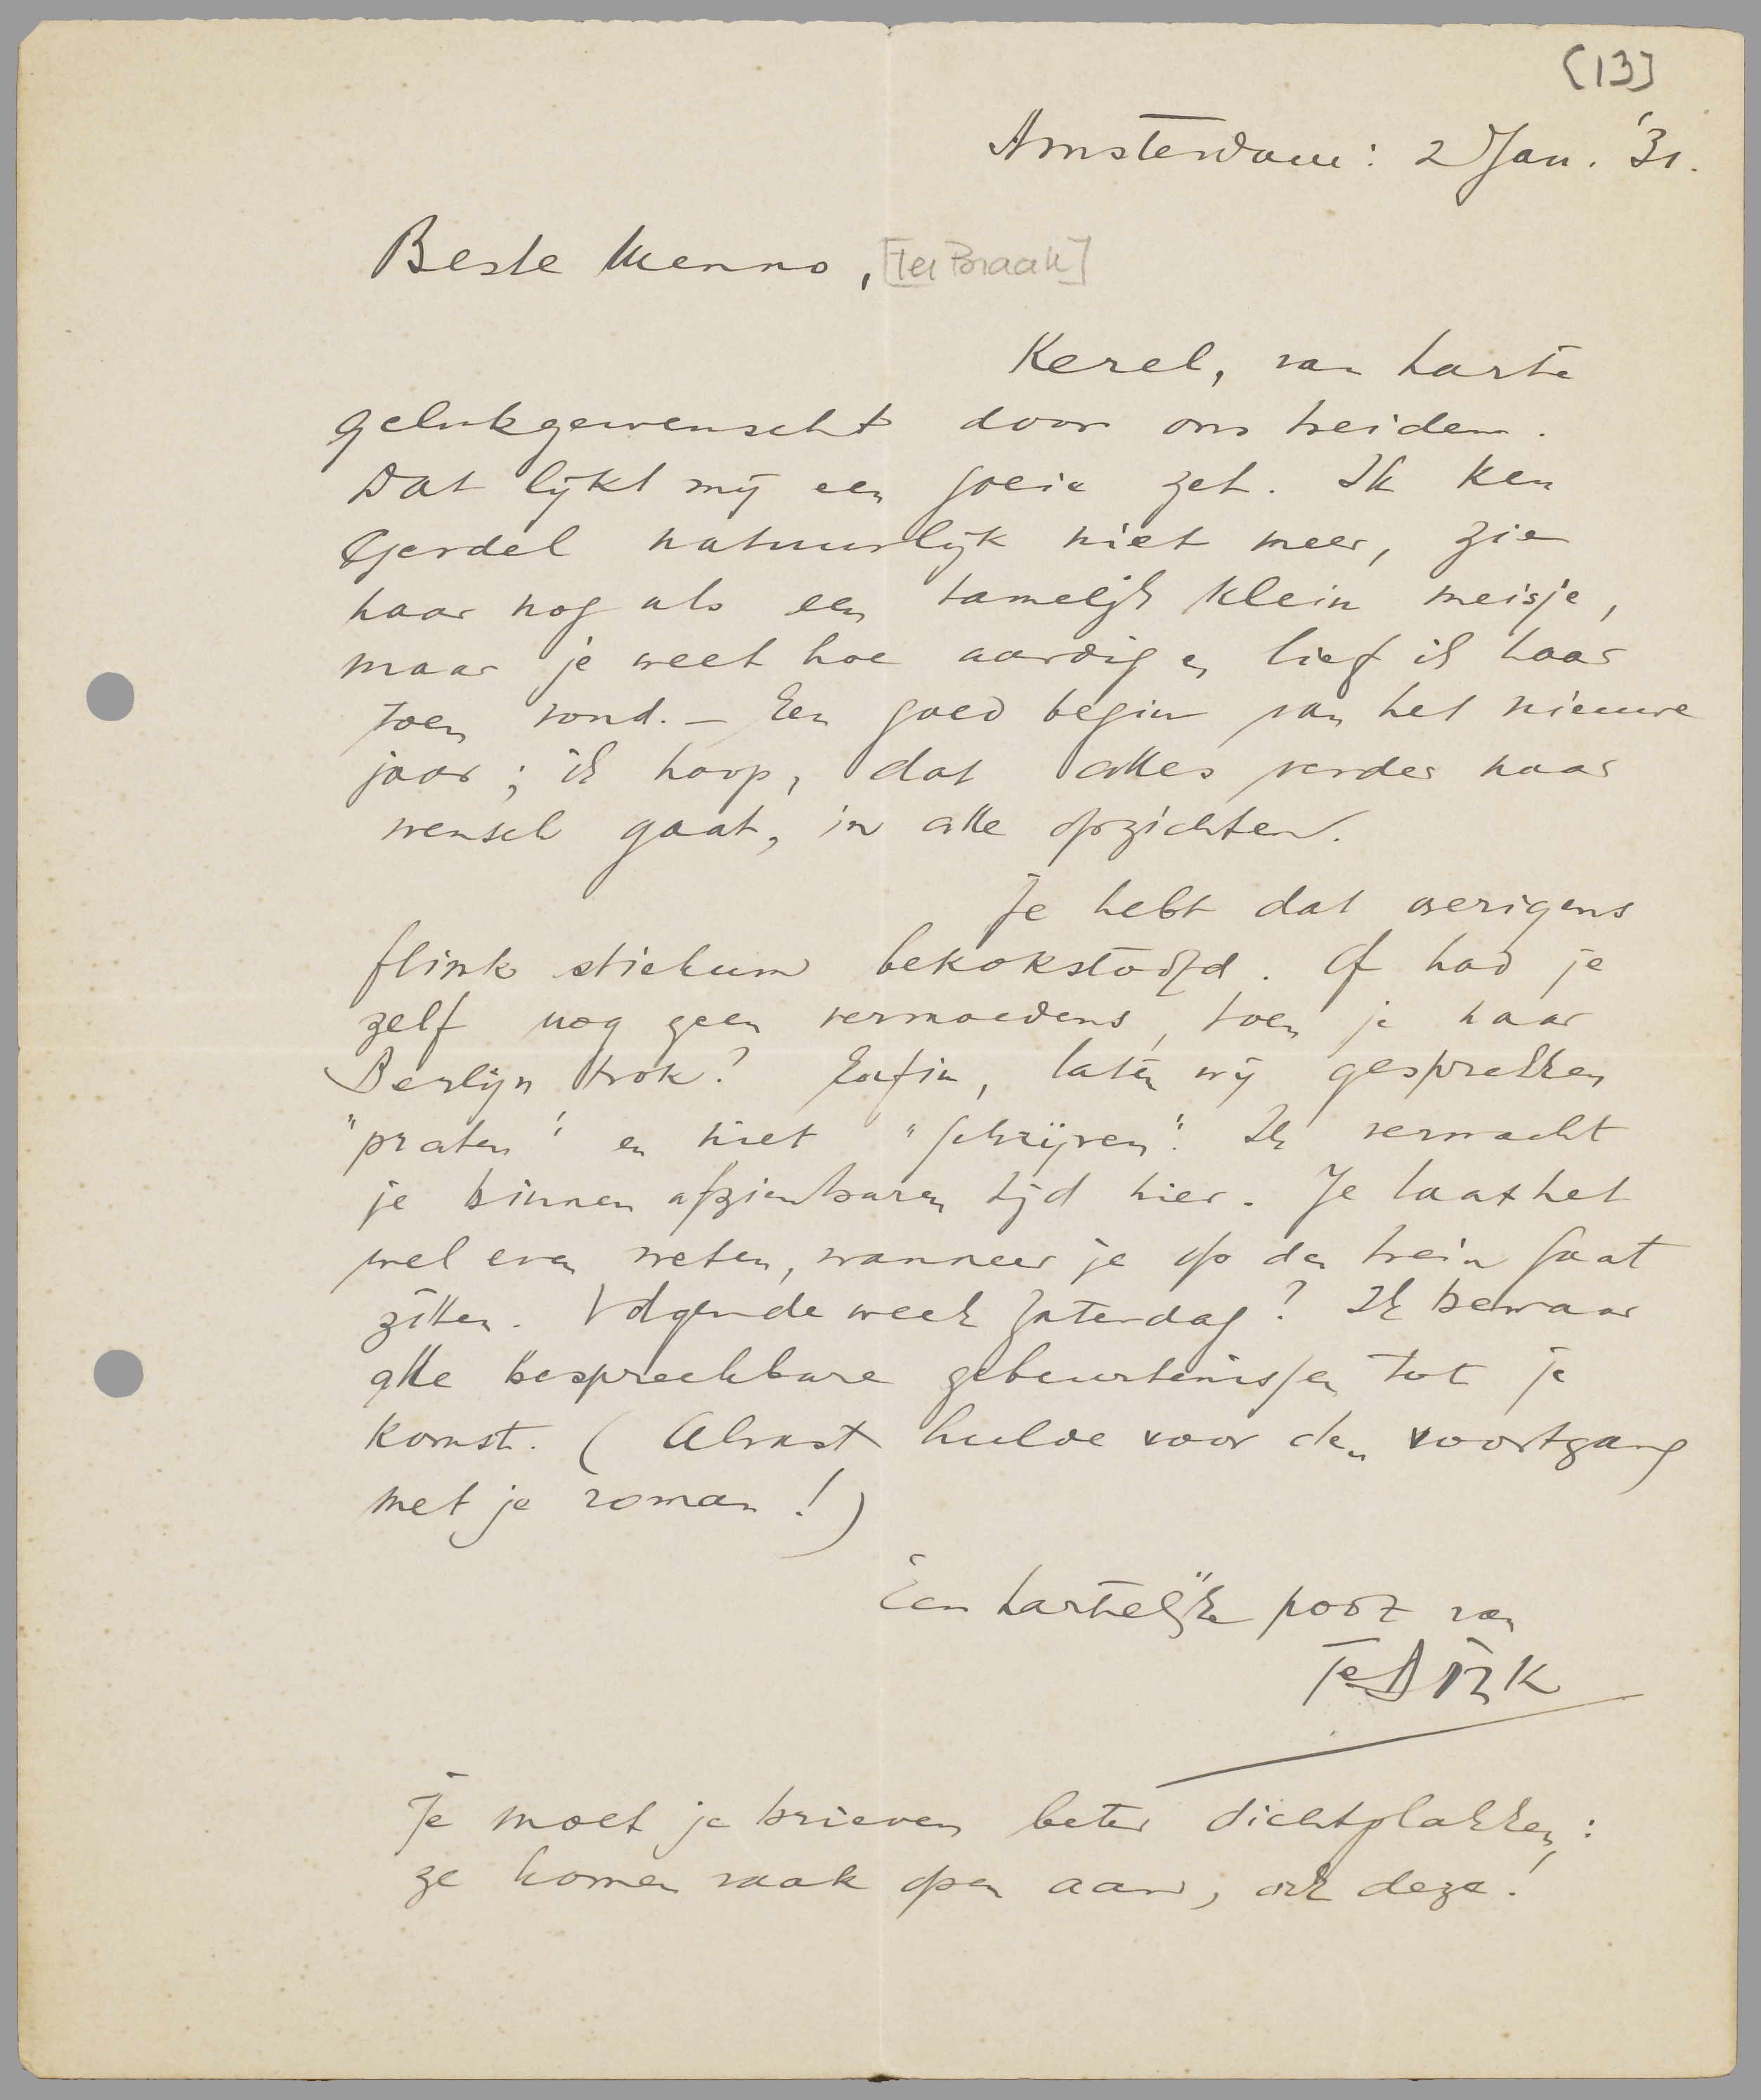 [13]
Amsterdam: 2 Jan. '31.
Beste Menno, [ter Braak]
Kerel, van harte
gelukgewenscht door ons beiden.
Dat lijkt mij een goeie zet. Ik ken
Gerdel natuurlijk niet meer, zie
haar nog als een tamelijk klein meisje,
maar je weet hoe aardig en lief ik haar
toen vond. — Een goed begin van het nieuwe
jaar; ik hoop, dat alles verder naar
wensch gaat, in alle opzichten.
Je hebt dat overigens
flink stiekum bekokstoofd. Of had je
zelf nog geen vermoedens, toen je naar
Berlijn trok? Enfin, laten wij gesprekken
"praten" en niet "schrijven". Ik verwacht
je binnen afzienbaren tijd hier. Je laat het
wel even weten, wanneer je op den trein gaat
zitten. Volgende week Zaterdag? Ik bewaar
alle bespreekbare gebeurtenissen tot je
komst. (Alvast hulde voor den voortgang
met je roman!)
Een hartelijke poot van
Je DIRK
Je moet je brieven beter dichtplakken:
ze komen vaak open aan, ook deze!